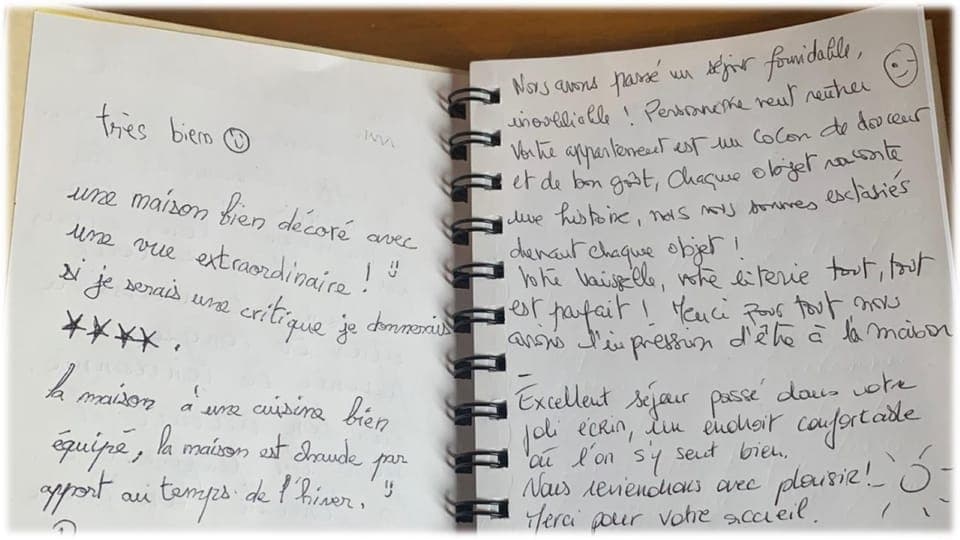 très bien
une maison bien décoré avec
une vue extraordinaire !
si je serais une critique je donnerais
****.
la maison à une cuisine bien
équipé, la maison est chaude par
apport au temps de l'hiver.
Nous avons passé un séjour formidable,
inoubliable ! Personne ne veut rentrer
Votre appartement est un cocon de douceur
et de bon goût, Chaque objet raconte
une histoire, nous nous sommes extasiés
devant chaque objet !
Votre Vaisselle, votre literie tout, tout
est parfait ! Merci pour tout nous
avions l'impression d'être à la maison
-
Excellent séjour passé dans votre
joli écrin, un endroit confortable
où l'on s'y sent bien.
Nous reviendrons avec plaisir !
Merci pour votre accueil.